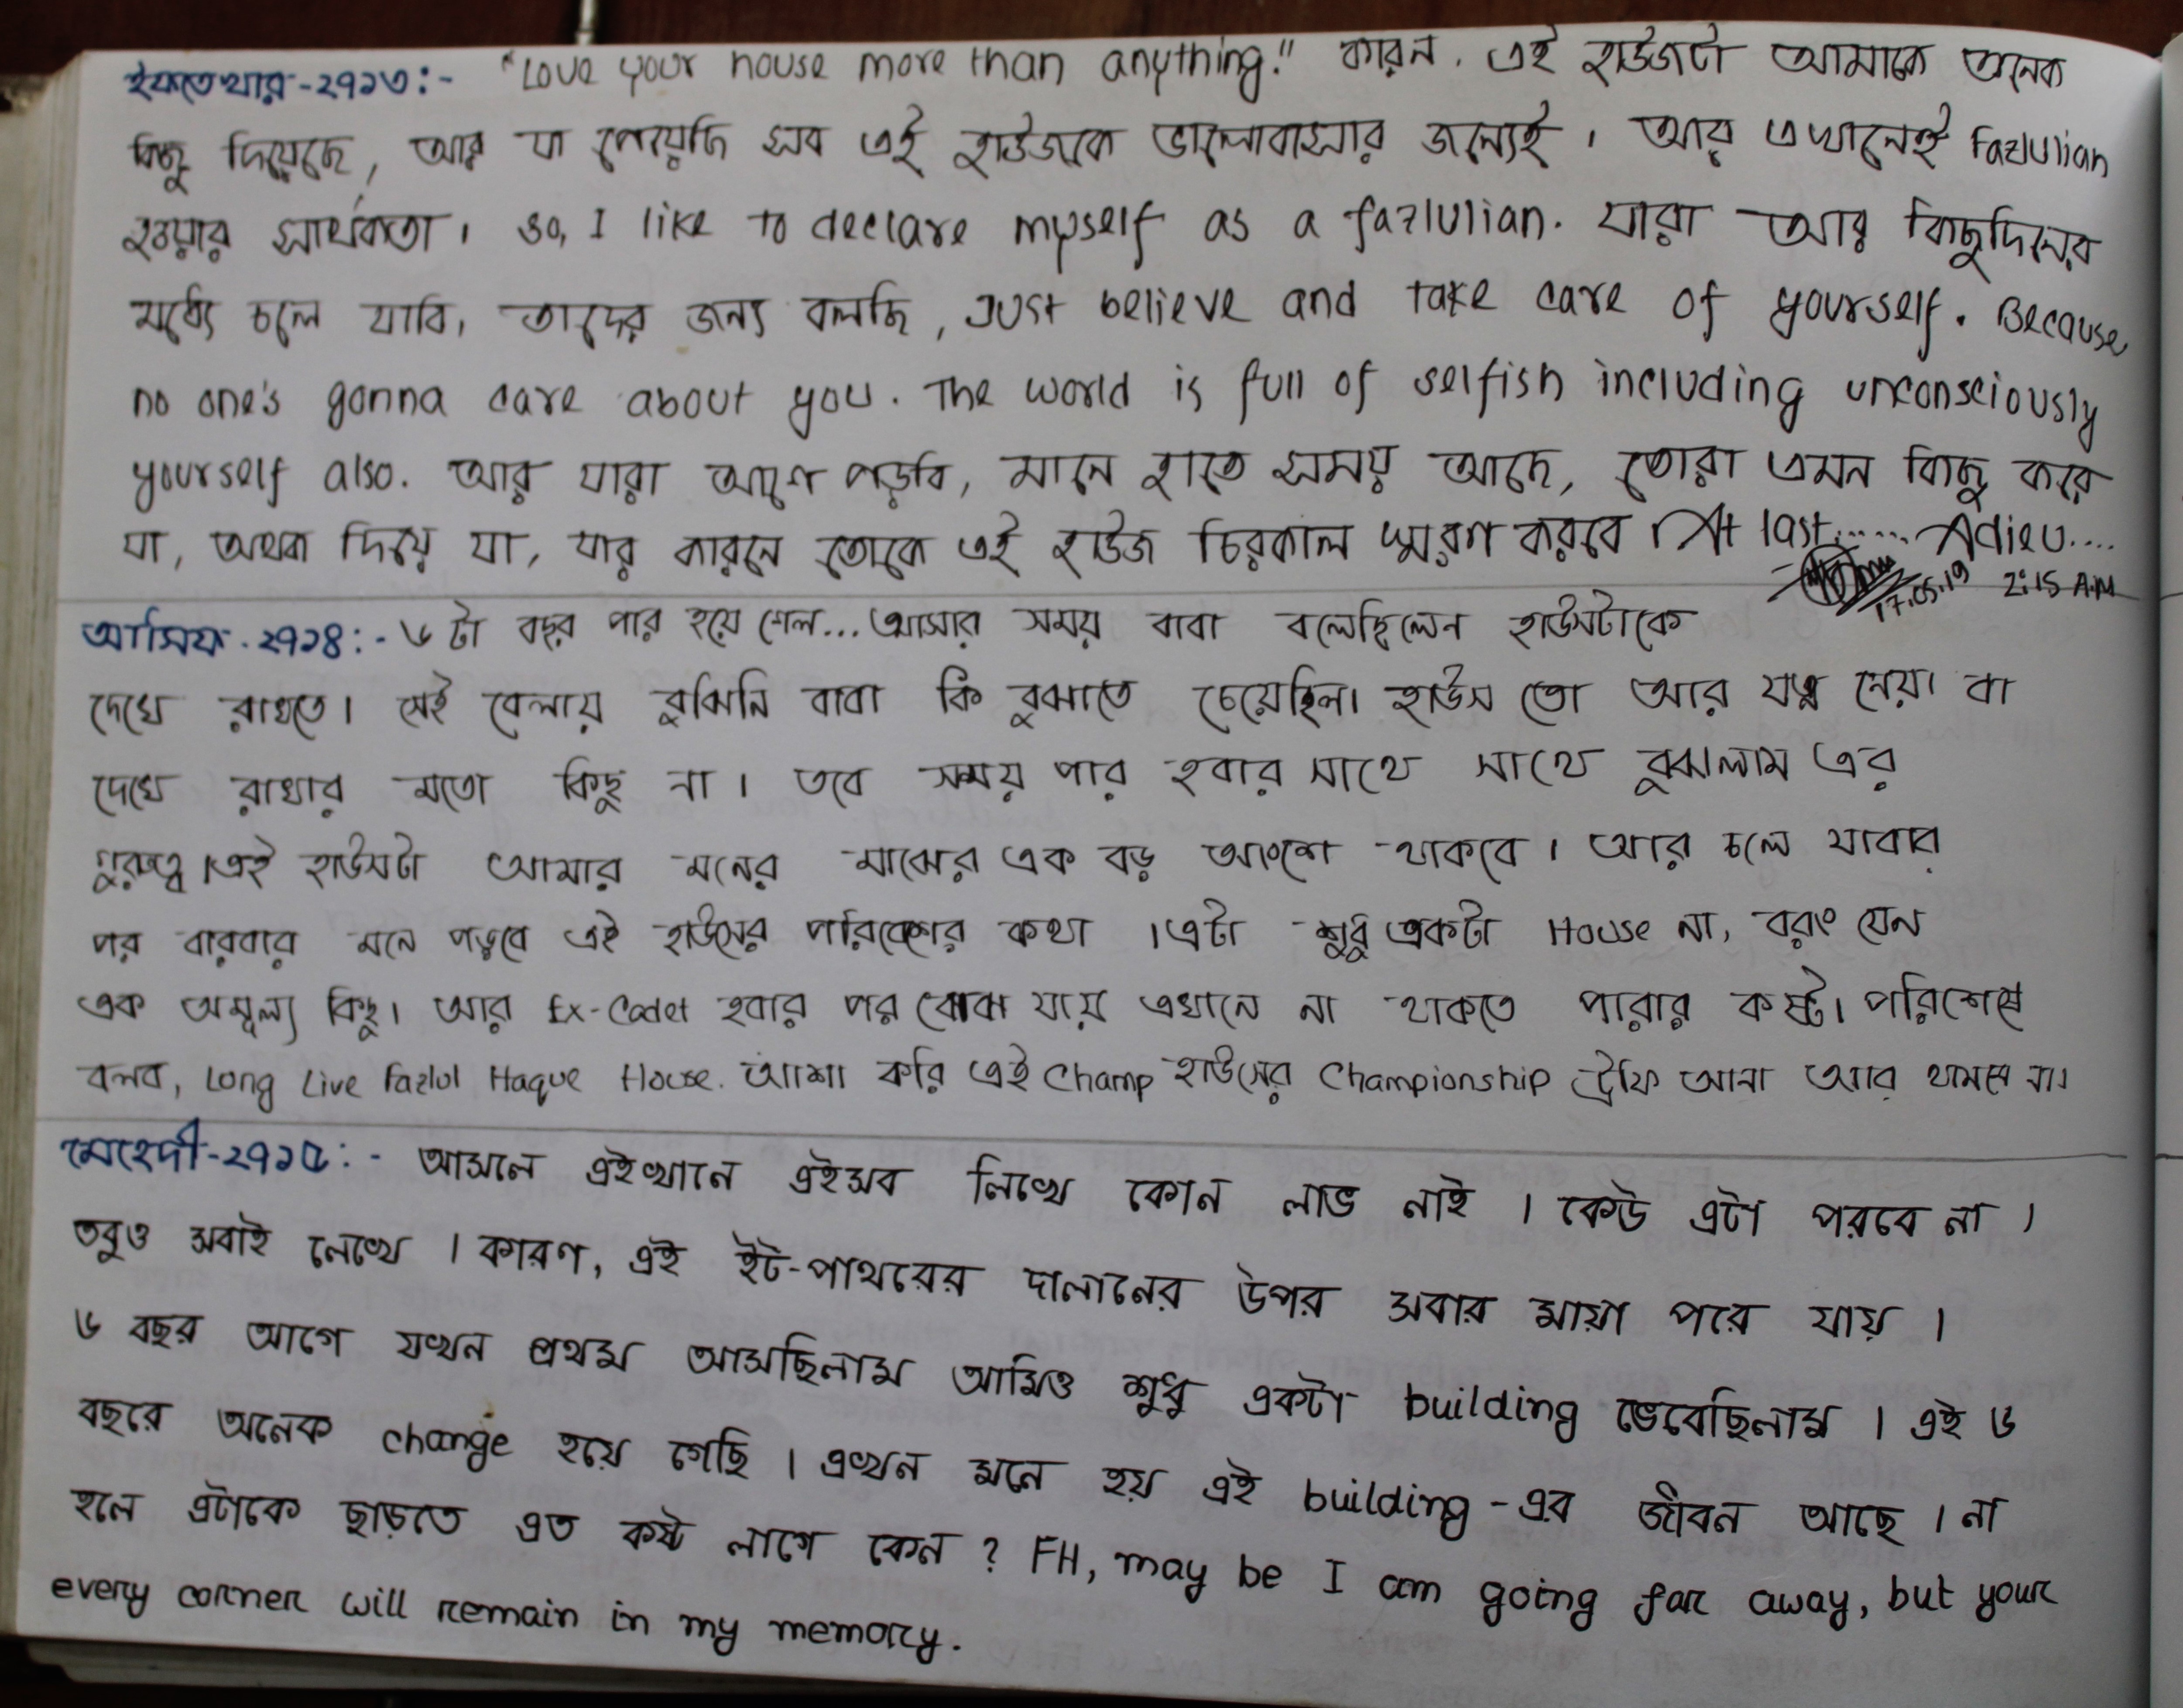 ইফতেখার-২৭১৩:- "Love your house more than anything." কারন, এই হাউজটা আমাকে অনেক
কিছু দিয়েছে, আর যা পেয়েছি সব এই হাউজকে ভালোবাসার জন্যেই। আর এখানেই fazlulian
হওয়ার সার্থকতা। So, I like to declare myself as a fazlulian. যারা আর কিছুদিনের
মধ্যে চলে যাবি, তাদের জন্য বলছি, Just believe and take care of yourself. Because
no one's gonna care about you. The world is full of selfish including unconsciously
yourself also. আর যারা আগে পড়বি, মানে হাতে সময় আছে, তোরা এমন কিছু করে
যা, অথবা দিয়ে যা, যার কারনে তোকে এই হাউজ চিরকাল স্মরণ করবে। At last...... Adieu....
17.05.19 2:15 A.M
আসিফ-২৭১৪:- ৬ টা বছর পার হয়ে গেল... আসার সময় বাবা বলেছিলেন হাউসটাকে
দেখে রাখতে। সেই বেলায় বুঝিনি বাবা কি বুঝাতে চেয়েছিল। হাউস তো আর যত্ন নেয়া বা
দেখে রাখার মতো কিছু না। তবে সময় পার হবার সাথে সাথে বুঝলাম এর
গুরুত্ব। এই হাউসটা আমার মনের মাঝের এক বড় অংশে থাকবে। আর চলে যাবার
পর বারবার মনে পড়বে এই হাউসের পরিবেশের কথা। এটা শুধু একটা House না, বরং যেন
এক অমূল্য কিছু। আর Ex-Cadet হবার পর বোঝা যায় এখানে না থাকতে পারার কষ্ট। পরিশেষে
বলব, Long Live Fazlul Haque House. আশা করি এই Champ হাউসের Championship ট্রফি আনা আর থামবে না।
মেহেদী-২৭১৫:- আসলে এইখানে এইসব লিখে কোন লাভ নাই। কেউ এটা পরবে না।
তবুও সবাই লেখে। কারণ, এই ইট-পাথরের দালানের উপর সবার মায়া পরে যায়।
৬ বছর আগে যখন প্রথম আসছিলাম আমিও শুধু একটা building ভেবেছিলাম। এই ৬
বছরে অনেক change হয়ে গেছি। এখন মনে হয় এই building-এর জীবন আছে। না
হলে এটাকে ছাড়তে এত কষ্ট লাগে কেন? FH, may be I am going far away, but your
every corner will remain in my memory.